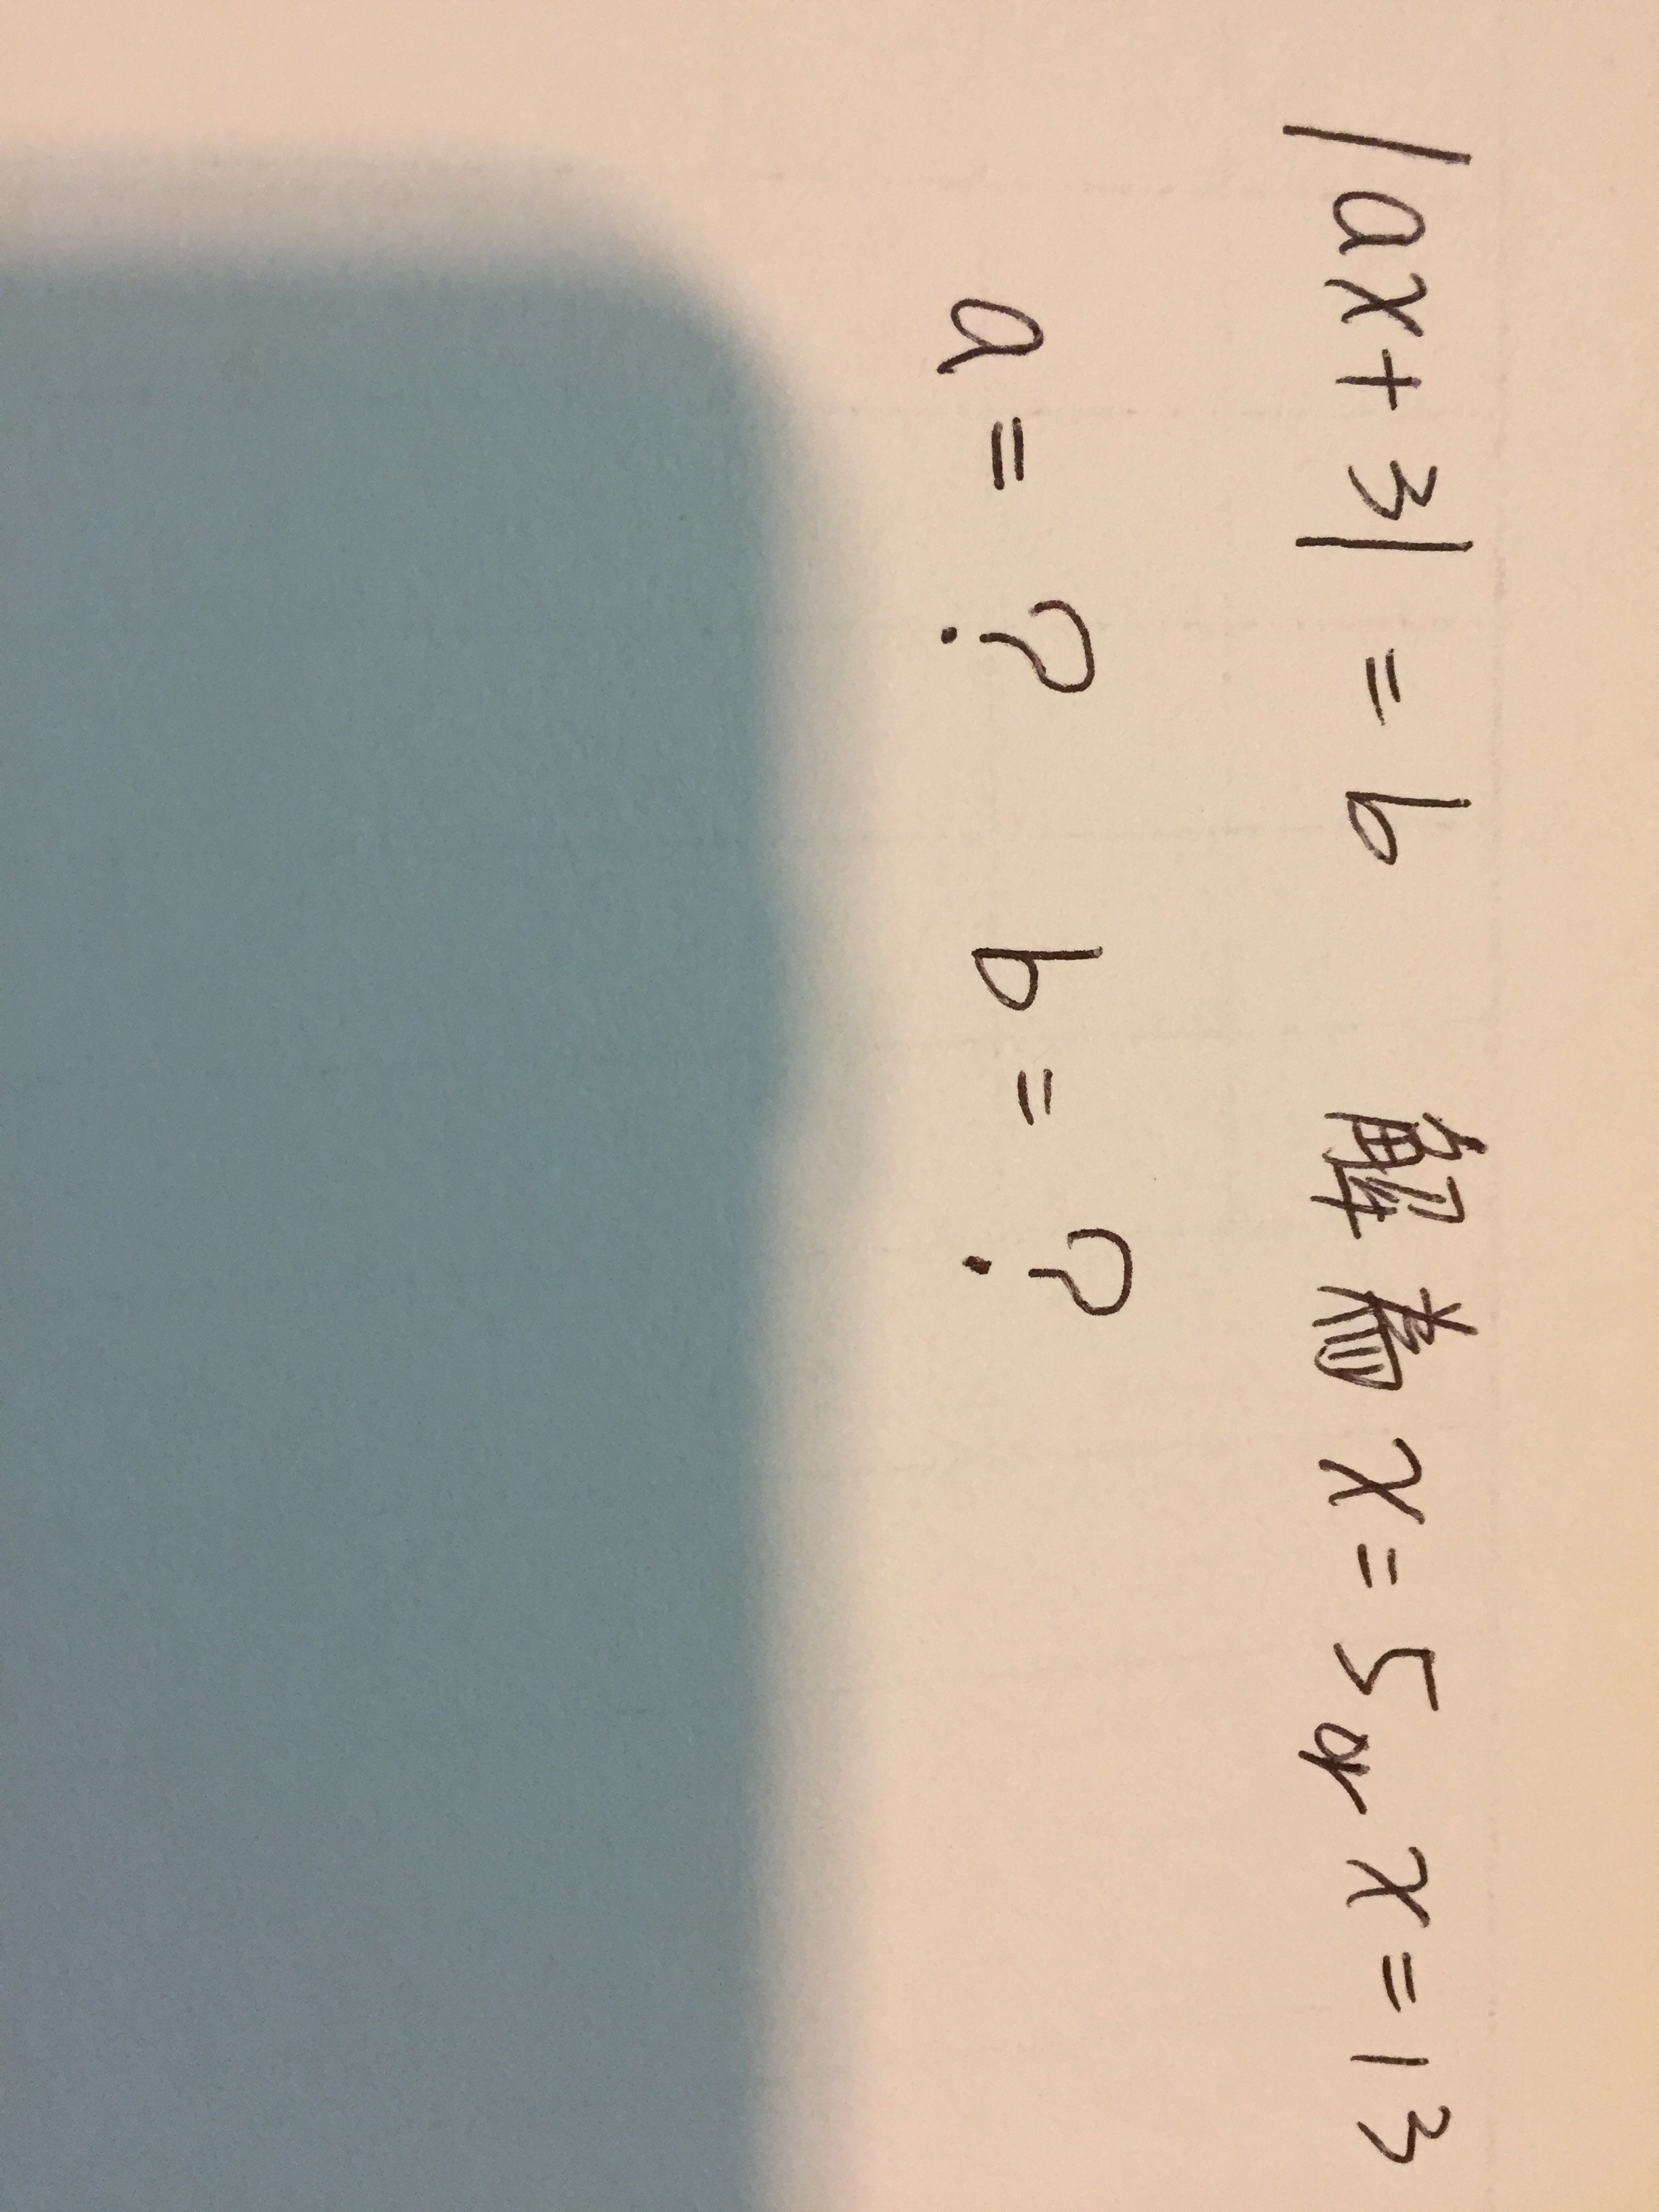 |ax+3| = b 解為 x=5 or x=13
a = ? b = ?